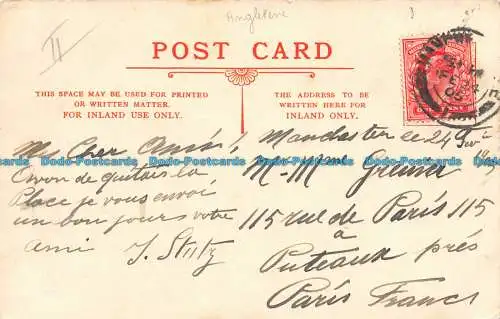 Angleterre
II
POST CARD
THIS SPACE MAY BE USED FOR PRINTED
OR WRITTEN MATTER.
FOR INLAND USE ONLY.
THE ADDRESS TO BE
WRITTEN HERE FOR
INLAND ONLY.
Mon Cher Amis
de quitais la
Place je vous envoi
un bon jours votre
ami J. Stutz
Manchester ce 24
M. Mme
115 rue de Paris 115
à
Puteaux prés
Paris France
Dodo-Postcards Dodo-Postcards Dodo-Postcards Dodo-Postcards Dodo-Postcards